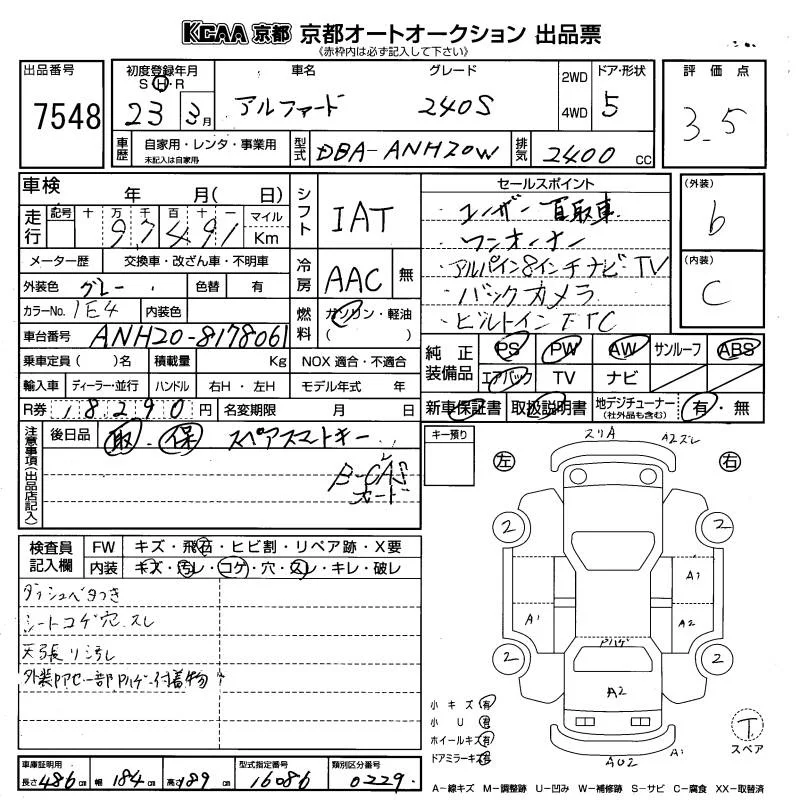 KCAA 京都 京都オートオークション 出品票
《赤枠内は必ず記入して下さい》
出品番号 7548
初度登録年月 S・H・R 23 3月
車名 アルファード
グレード 240S
2WD 4WD
ドア・形状 5
評価点 3.5
車歴 自家用・レンタ・事業用 未記入は自家用
型式 DBA-ANH20W
排気 2400 CC
車検 年 月( 日)
シフト IAT
セールスポイント
・ユーザー買取車
・ワンオーナー
・アルパイン8インチナビ・TV
・バックカメラ
・ビルトインETC
(外装) b
(内装) C
走行 記号 十 万 千 百 十 一 97491 マイル Km
メーター歴 交換車・改ざん車・不明車
冷房 AAC 無
外装色 グレー 色替 有
カラーNo. 1E4 内装色
燃料 ガソリン・軽油 ( )
車台番号 ANH20-8178061
純正装備品 PS PW AW サンルーフ ABS
エアバック TV ナビ
乗車定員( )名 積載量 Kg NOX 適合・不適合
輸入車 ディーラー・並行 ハンドル 右H・左H モデル年式 年
R券 18290円 名変期限 月 日
新車保証書 取扱説明書 地デジチューナー (社外品も含む) 有・無
注意事項(出品店記入)
後日品 取・保 スペアスマートキー
B-CAS
カード
キー預り
スリA A2ズレ
左 右
2 2
A1
A1 A2
Pハゲ
2 2
A2
A02 A1
検査員記入欄
FW キズ・飛石・ヒビ割・リペア跡・X要
内装 キズ・汚レ・コゲ・穴・スレ・キレ・破レ
ダッシュベタつき
シートコゲ穴、スレ
天張り汚レ
小キズ 有
小U 有
ホイールキズ 有
ドアミラーキズ 有
T
スペア
車庫証明用 長さ 486cm 幅 184cm 高さ 189cm
型式指定番号 16086
類別区分番号 0229
A-線キズ M-調整跡 U-凹み W-補修跡 S-サビ C-腐食 XX-取替済